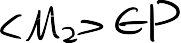 <M₂> ∈ P